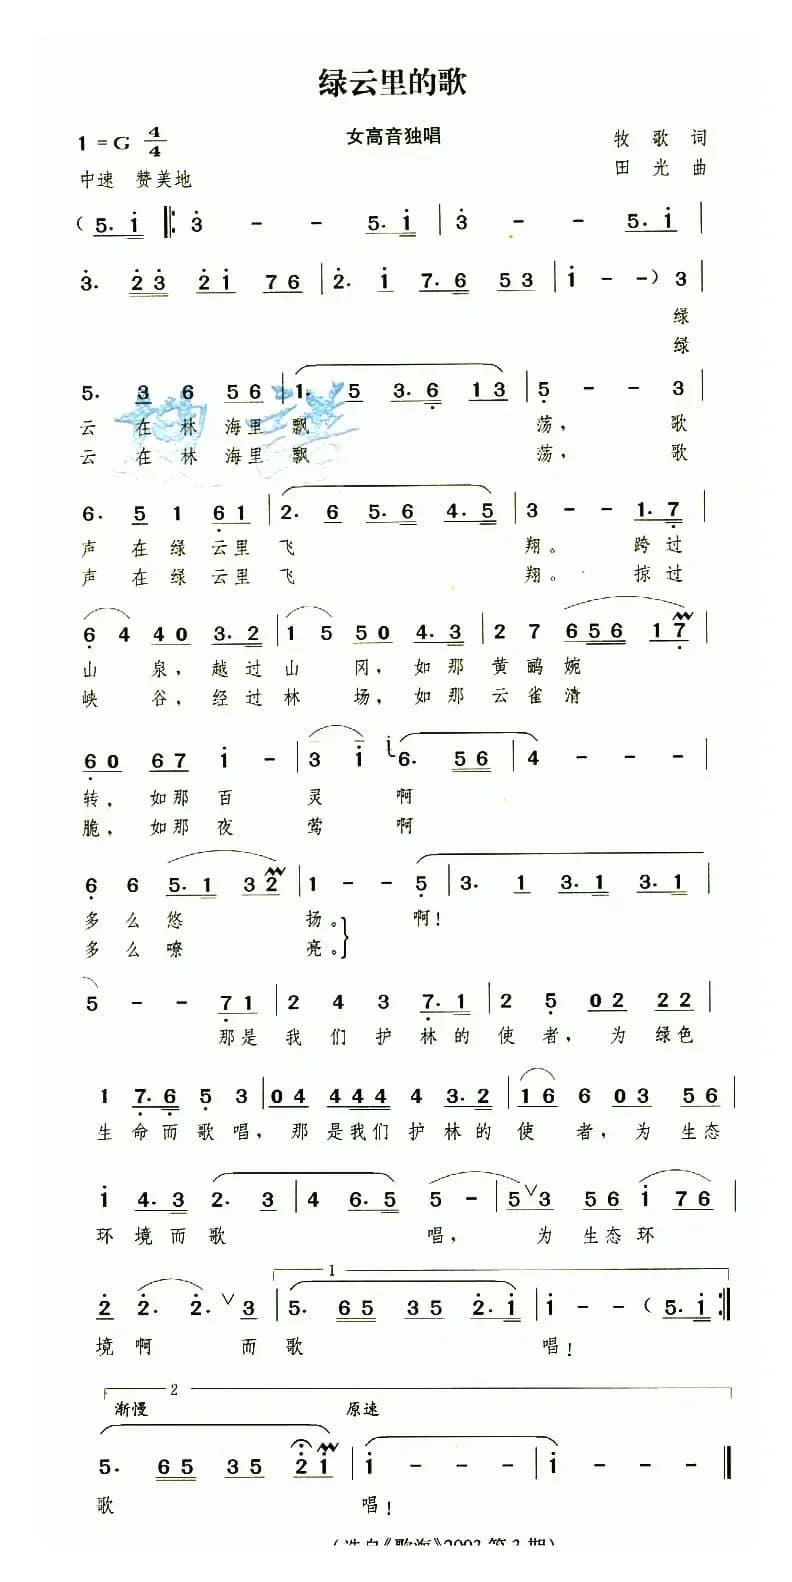 绿云里的歌
1=G 4/4 女高音独唱 牧歌 词
中速 赞美地 田光 曲
(5. i ‖: 3 - - 5. i | 3 - - 5. i |
3. 2 3 2 i 7 6 | 2. i 7. 6 5 3 | i - - ) 3 |
绿
绿
5. 3 6 5 6 | 1. 5 3. 6 1 3 | 5 - - 3 |
云在林海里飘荡，歌
云在林海里飘荡，歌
6. 5 1 6 1 | 2. 6 5. 6 4. 5 | 3 - - 1. 7 |
声在绿云里飞翔。跨过
声在绿云里飞翔。掠过
6 4 4 0 3. 2 | 1 5 5 0 4. 3 | 2 7 6 5 6 1 7 |
山泉，越过山冈，如那黄鹂婉
峡谷，经过林场，如那云雀清
6 0 6 7 i - | 3 i i 6. 5 6 | 4 - - - |
转，如那百灵啊
脆，如那夜莺啊
6 6 5. 1 3 2 | 1 - - 5 | 3. 1 3. 1 3. 1 |
多么悠扬。啊！
多么嘹亮。
5 - - 7 1 | 2 4 3 7. 1 | 2 5 0 2 2 2 |
那是我们护林的使者，为绿色
1 7. 6 5 3 | 0 4 4 4 4 4 3. 2 | 1 6 6 0 3 5 6 |
生命而歌唱，那是我们护林的使者，为生态
i 4. 3 2. 3 | 4 6 6. 5 5 - | 5 ∨ 3 5 6 i 7 6 |
环境而歌唱，为生态环
1
2 2. 2. ∨ 3 | 5. 6 5 3 5 2. i | i - ( 5. i :‖
境啊而歌唱！
2
渐慢 原速
5. 6 5 3 5 2 i | i - - - | i - - - ‖
歌唱！
(选自《歌海》2003第3期)